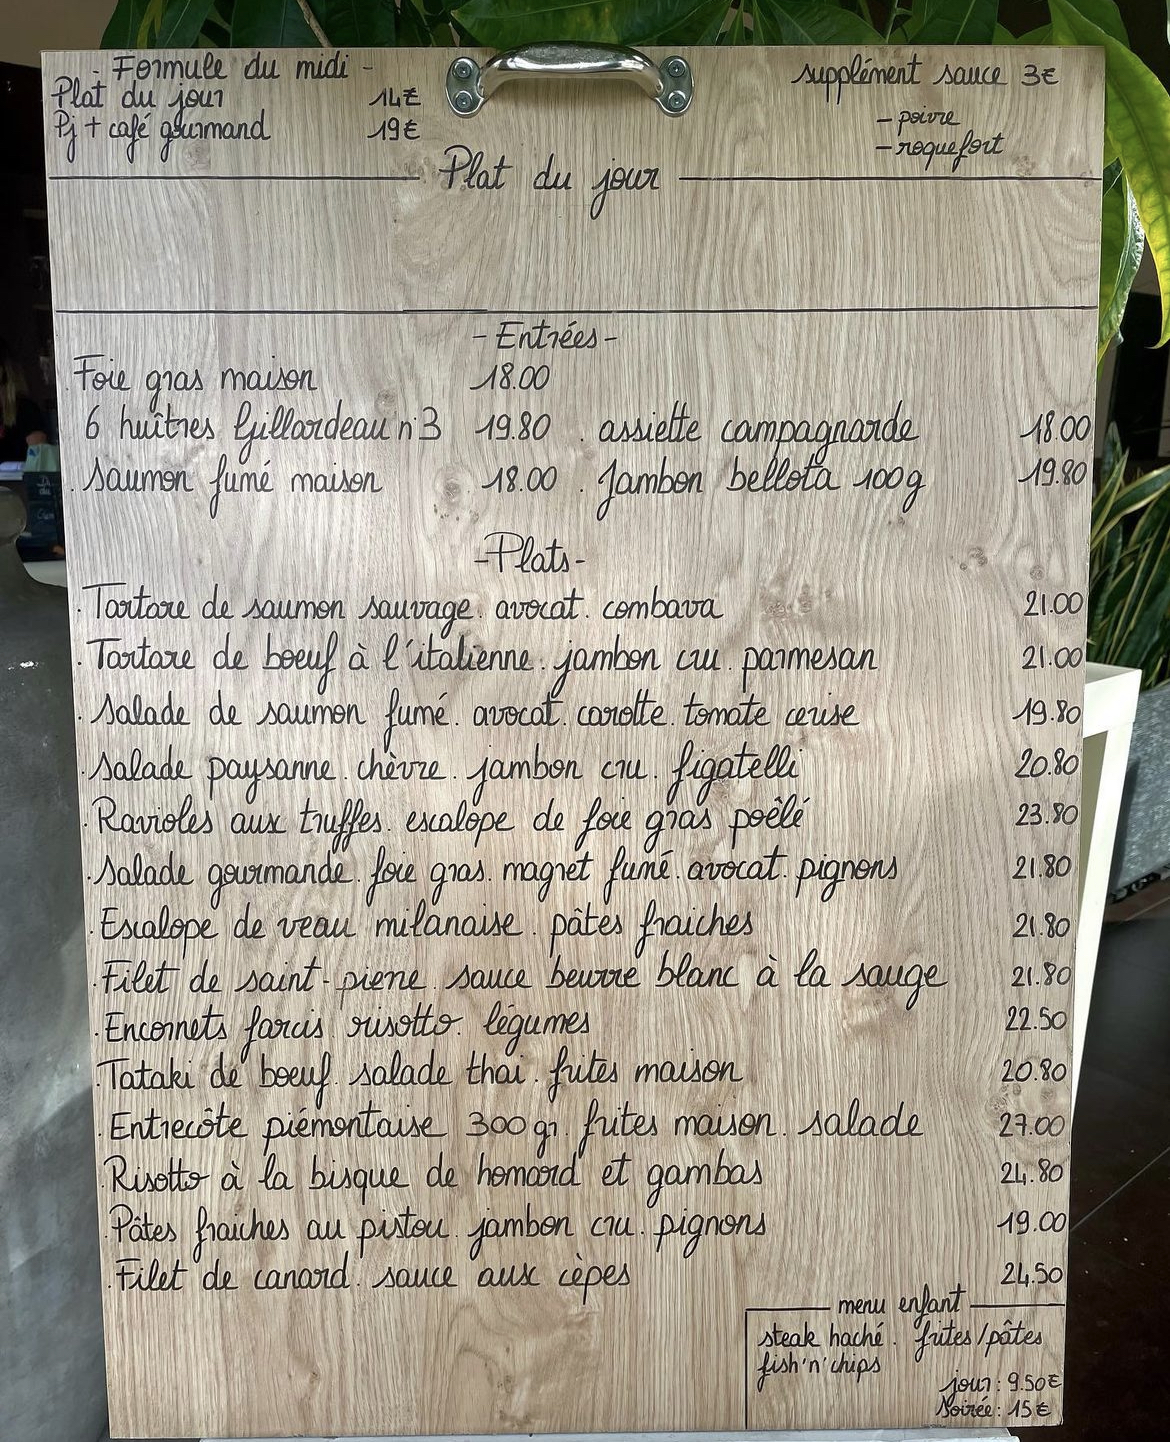 - Formule du midi -
Plat du jour 14€
Pj + café gourmand 19€
supplément sauce 3€
- poivre
- roquefort
Plat du jour
- Entrées -
Foie gras maison 18.00
6 huîtres Gillardeau n°3 19.80 . assiette campagnarde 18.00
. saumon fumé maison 18.00 . Jambon bellota 100g 19.80
- Plats -
. Tartare de saumon sauvage. avocat. combava 21.00
. Tartare de boeuf à l'italienne. jambon cru. parmesan 21.00
. Salade de saumon fumé. avocat. carotte. tomate cerise 19.80
. Salade paysanne. chèvre. jambon cru. figatelli 20.80
. Ravioles aux truffes. escalope de foie gras poêlé 23.80
. Salade gourmande. foie gras. magret fumé. avocat. pignons 21.80
. Escalope de veau milanaise. pâtes fraiches 21.80
. Filet de saint-pierre sauce beurre blanc à la sauge 21.80
. Encornets farcis risotto. légumes 22.50
. Tataki de boeuf. salade thai. frites maison 20.80
. Entrecôte piémontaise 300 gr. frites maison. salade 27.00
. Risotto à la bisque de homard et gambas 24.80
. Pâtes fraiches au pistou. jambon cru. pignons 19.00
. Filet de canard. sauce aux cèpes 24.50
menu enfant
steak haché. frites/pâtes
fish'n'chips
jour: 9.50€
Soirée: 15€